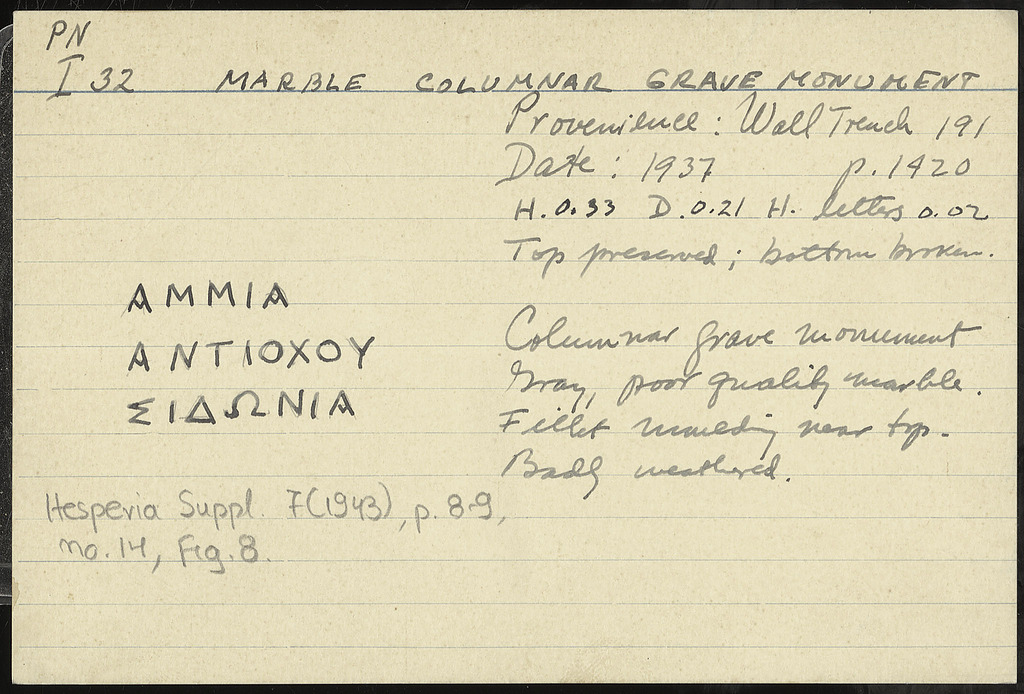 PN
I 32 MARBLE COLUMNAR GRAVE MONUMENT
Provenience: Wall Trench 191
Date: 1937 p. 1420
H. 0.33 D. 0.21 H. letters 0.02
Top preserved; bottom broken.
ΑΜΜΙΑ
ΑΝΤΙΟΧΟΥ
ΣΙΔΩΝΙΑ
Columnar grave monument
Gray, poor quality marble.
Fillet moulding near top.
Badly weathered.
Hesperia Suppl. 7(1943), p. 8-9,
no. 14, Fig. 8.